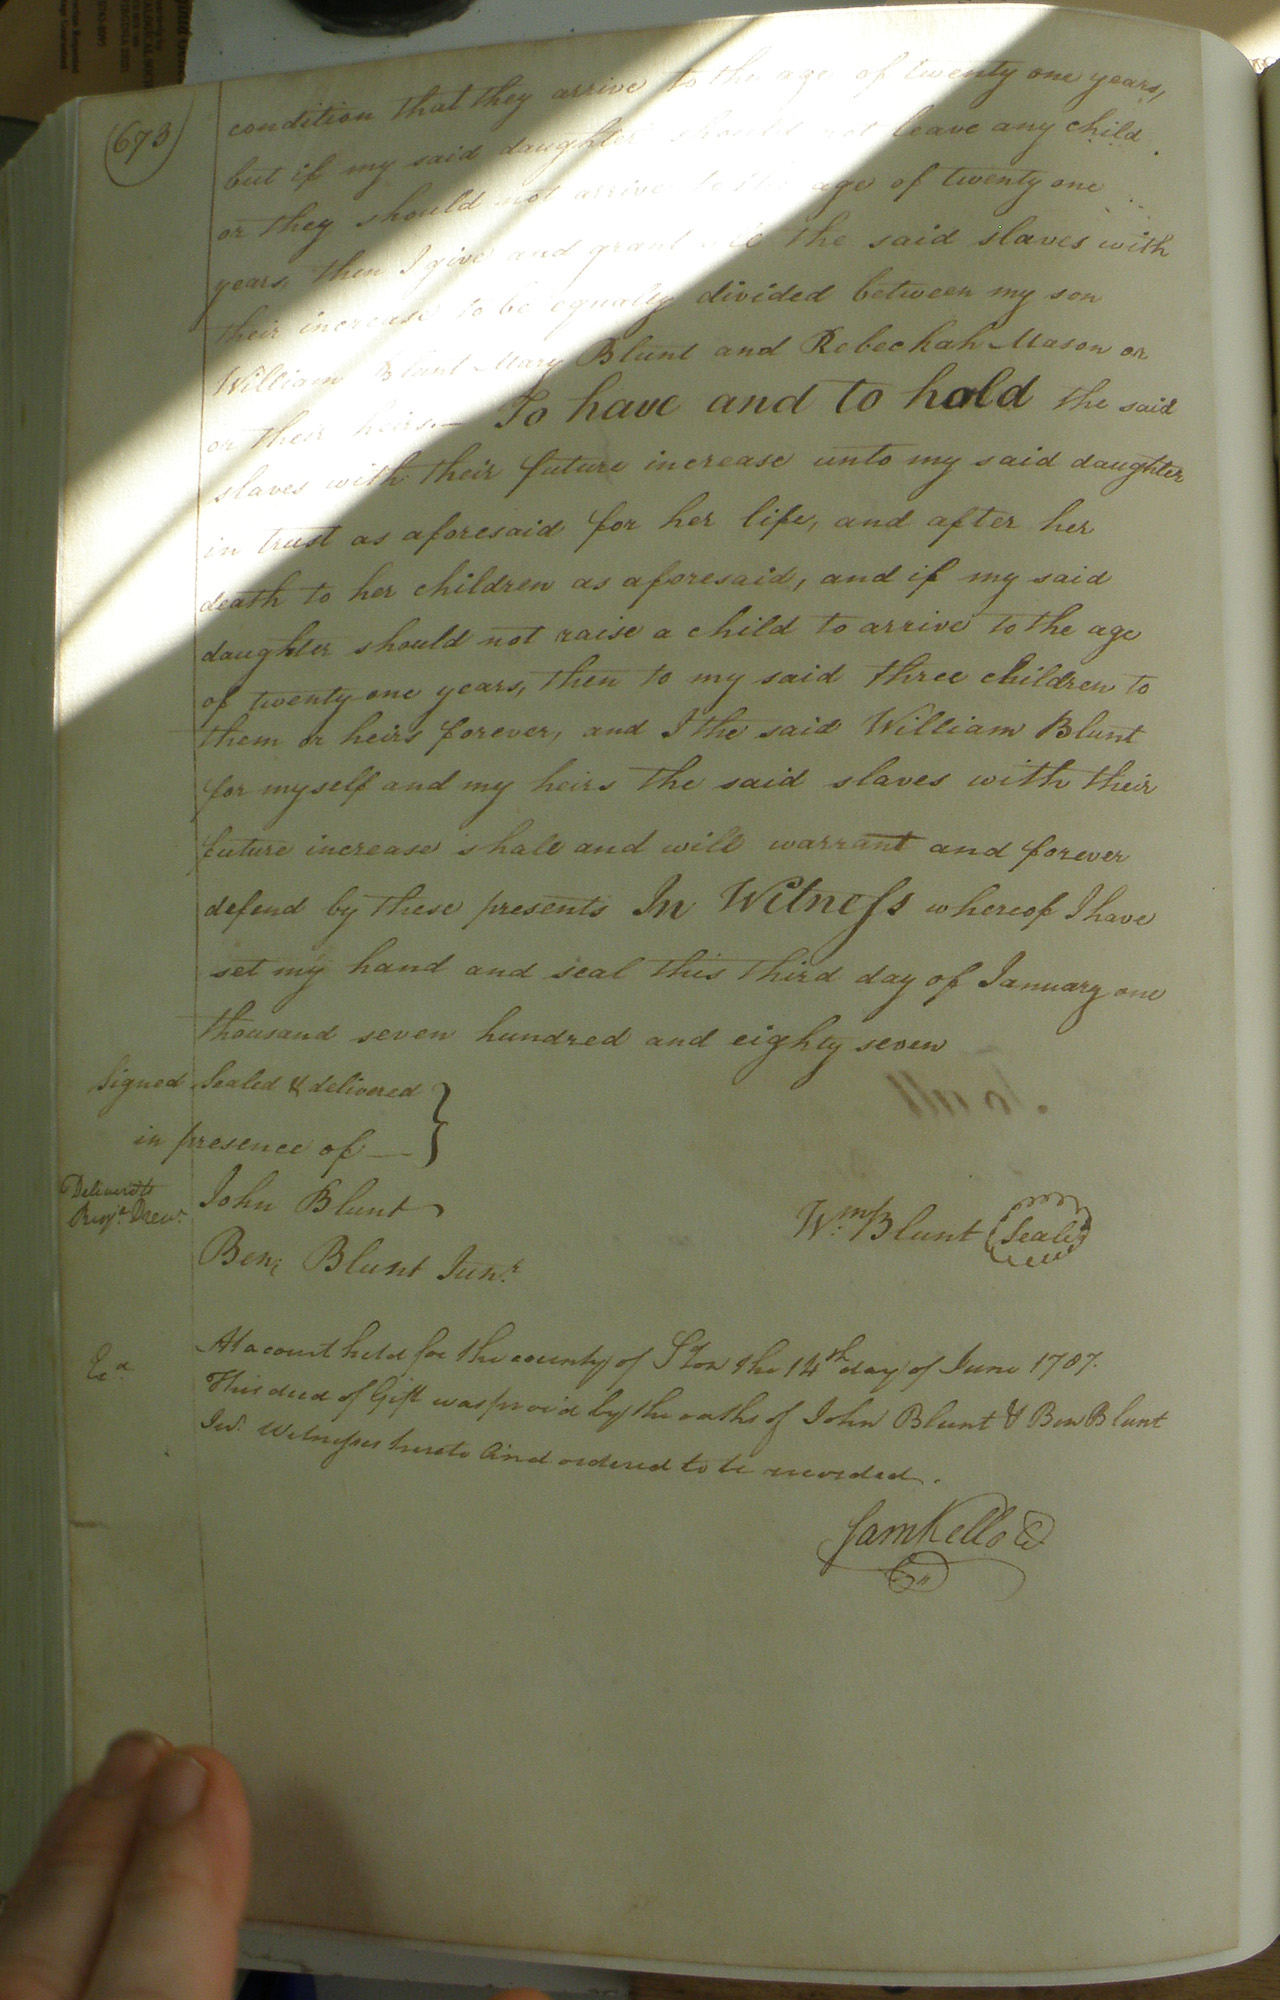 (673)
condition that they arrive to the age of twenty one years,
but if my said daughter should not leave any child
or they should not arrive to the age of twenty one
years, then I give and grant all the said slaves with
their increase to be equally divided between my son
William Blunt Mary Blunt and Rebeckah Mason or
or their heirs. — To have and to hold the said
slaves with their future increase unto my said daughter
in trust as aforesaid for her life, and after her
death to her children as aforesaid, and if my said
daughter should not raise a child to arrive to the age
of twenty one years, then to my said three children to
them or heirs forever, and I the said William Blunt
for myself and my heirs the said slaves with their
future increase shall and will warrant and forever
defend by these presents In Witness whereof I have
set my hand and seal this third day of January one
thousand seven hundred and eighty seven
Signed Sealed & delivered
in presence of —
Deliver'd to
Drew
John Blunt
Wm. Blunt (Seal)
Ben: Blunt Junr.
Ed.
At a court held for the county of Ston the 14th day of June 1787.
This deed of Gift was prov'd by the oaths of John Blunt & Ben Blunt
Jur. Witnesses hereto And ordered to be recorded.
Sam Kello